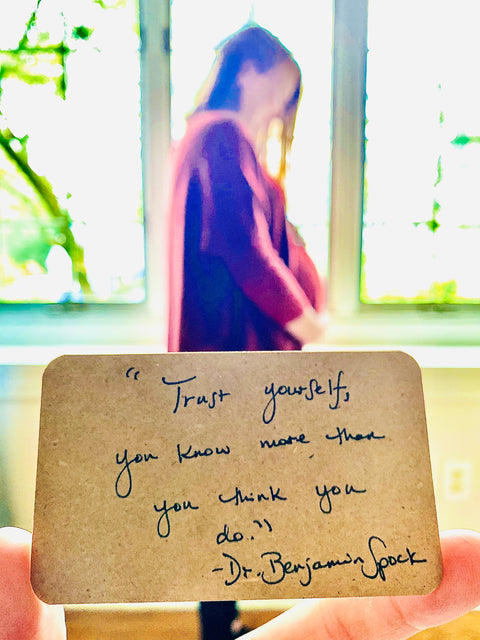 "Trust yourself,
you know more than
you think you
do."
-Dr. Benjamin Spock